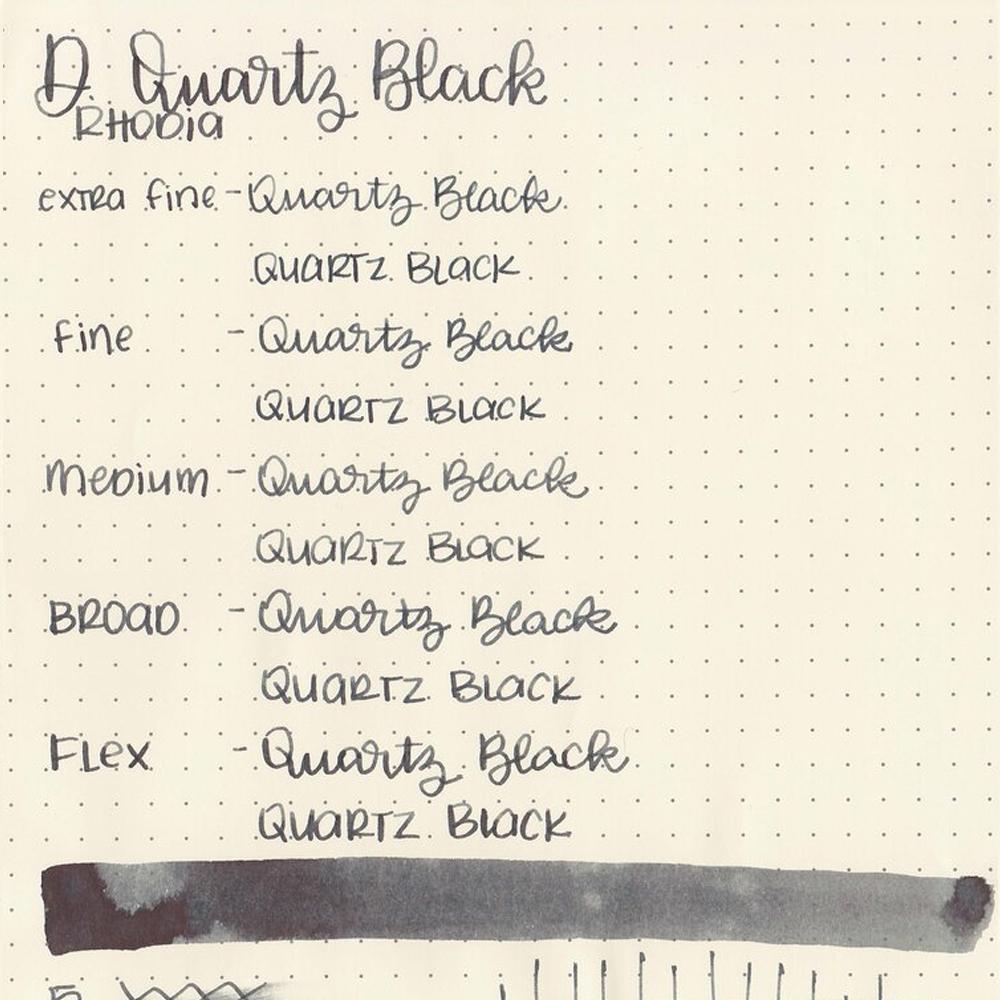 D. Quartz Black
RHODia
extra fine - Quartz Black
QUARTZ BLACK
fine - Quartz Black
QUARTZ BLACK
Medium - Quartz Black
QUARTZ BLACK
BROAD - Quartz Black
QUARTZ BLACK
FLex - Quartz Black
QUARTZ BLACK